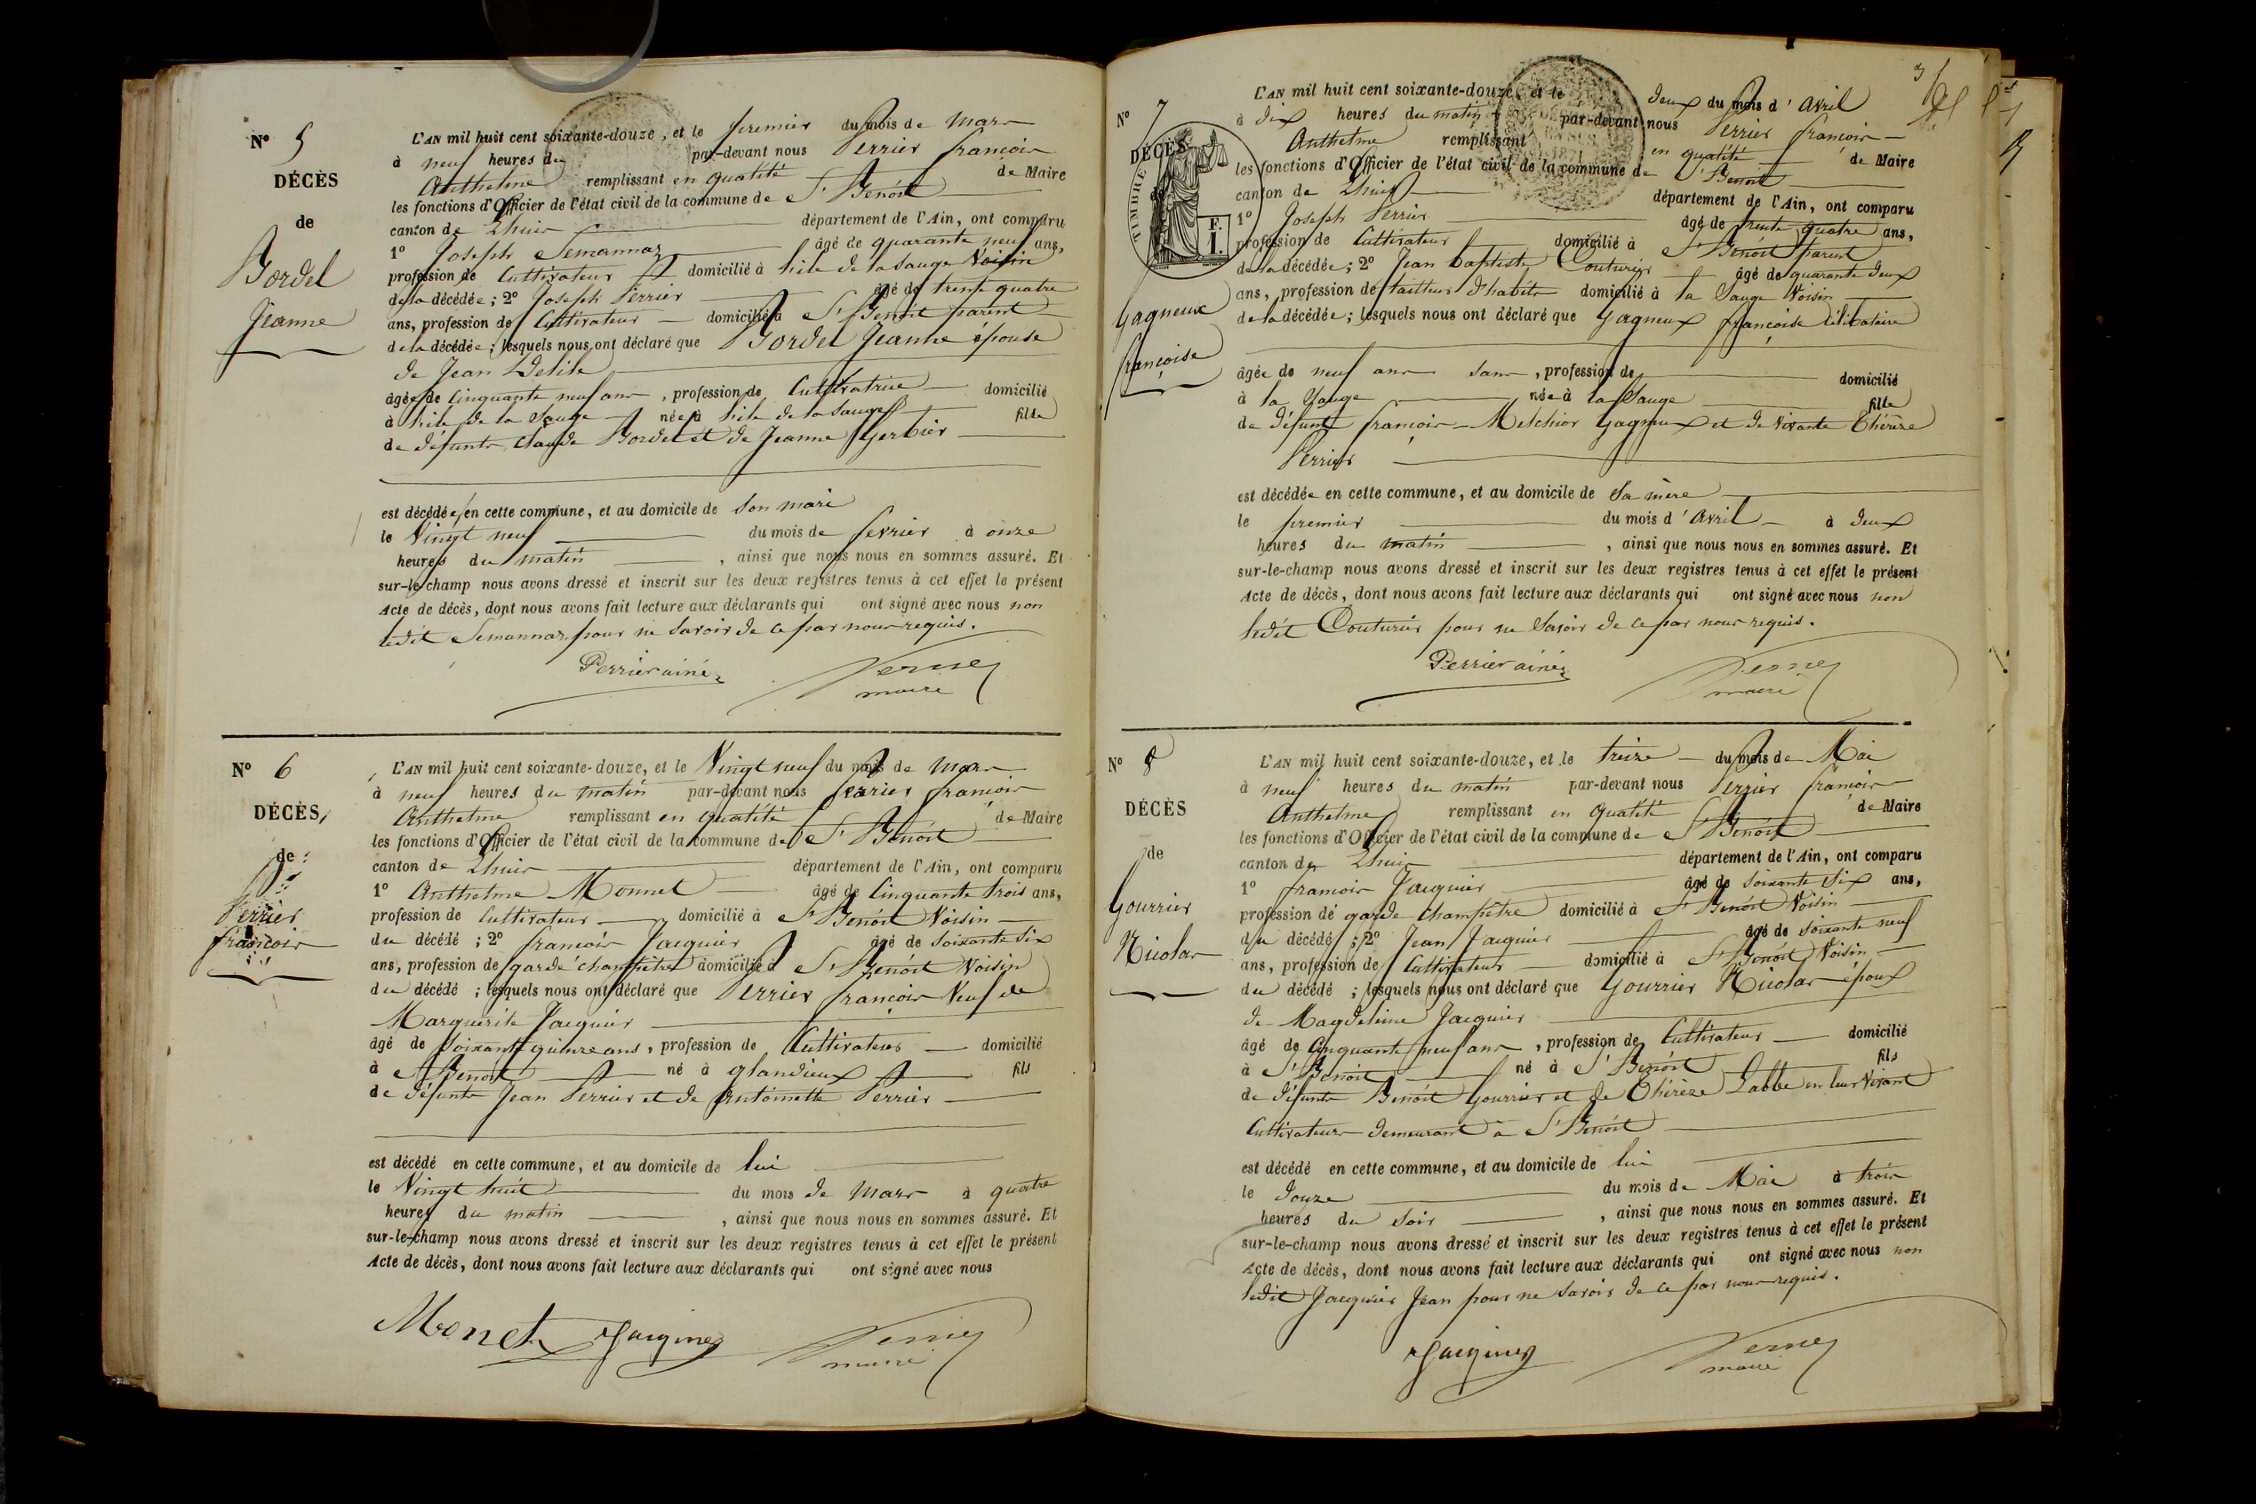 N° 5
DÉCÈS
de
Bordel
Jeanne
L'AN mil huit cent soixante-douze, et le premier du mois de Mars
à neuf heures du par-devant nous Perrier françois
Anthelme remplissant en qualité de Maire
les fonctions d'Officier de l'état civil de la commune de St Benoit
canton de Lhuis département de l'Ain, ont comparu
1° Joseph Semannaz âgé de quarante neuf ans,
profession de Cultivateur domicilié à hile de la Sauge Voisin
de la décédée ; 2° Joseph Perrier âgé de trente quatre
ans, profession de Cultivateur domicilié à St Benoit parent
de la décédée ; lesquels nous ont déclaré que Bordel Jeanne épouse
de Jean Delile
âgée de Cinquante neuf ans, profession de Cultivatrice domicilié
à hile de la Sauge née à hile de la Sauge fille
de défunts Claude Bordel et de Jeanne Gerbier
est décédée en cette commune, et au domicile de son mari
le Vingt neuf du mois de fevrier à onze
heures du matin, ainsi que nous nous en sommes assuré. Et
sur-le-champ nous avons dressé et inscrit sur les deux registres tenus à cet effet le présent
Acte de décès, dont nous avons fait lecture aux déclarants qui ont signé avec nous non
ledit Semannaz pour ne savoir de ce par nous requis.
Perrier ainé
maire
N° 6
DÉCÈS
de
Perrier
françois
L'AN mil huit cent soixante-douze, et le Vingt neuf du mois de Mars
à neuf heures du matin par-devant nous Perrier françois
Anthelme remplissant en qualité de Maire
les fonctions d'Officier de l'état civil de la commune de St Benoit
canton de Lhuis département de l'Ain, ont comparu
1° Anthelme Monnet âgé de Cinquante trois ans,
profession de Cultivateur domicilié à St Benoit Voisin
du décédé ; 2° françois Jacquier âgé de soixante six
ans, profession de garde champêtre domicilié à St Benoit Voisin
du décédé ; lesquels nous ont déclaré que Perrier françois Veuf de
Marguerite Jacquier
âgé de soixante quinze ans, profession de Cultivateur domicilié
à St Benoit né à glandieux fils
de défunts Jean Perrier et de Antoinette Perrier
est décédé en cette commune, et au domicile de lui
le Vingt huit du mois de Mars à quatre
heures du matin, ainsi que nous nous en sommes assuré. Et
sur-le-champ nous avons dressé et inscrit sur les deux registres tenus à cet effet le présent
Acte de décès, dont nous avons fait lecture aux déclarants qui ont signé avec nous
Monet Jaiquiey
maire
N° 7
DÉCÈS
TIMBRE
F.
1.
Gagneux
françoise
L'AN mil huit cent soixante-douze, et le deux du mois d'Avril
à dix heures du matin par-devant nous Perrier françois
Anthelme remplissant en qualité de Maire
les fonctions d'Officier de l'état civil de la commune de St Benoit
canton de Lhuis département de l'Ain, ont comparu
1° Joseph Perrier âgé de trente quatre ans,
profession de Cultivateur domicilié à St Benoit parent
de la décédée ; 2° Jean Baptiste Couturier âgé de quarante deux
ans, profession de tailleur d'habits domicilié à la Sauge Voisin
de la décédée ; lesquels nous ont déclaré que Gagneux françoise Célibataire
âgée de neuf ans sans, profession de domicilié
à la Sauge née à la Sauge fille
de défunt françois-Melchior Gagneux et de Vivante Thérèse
Perrier
est décédée en cette commune, et au domicile de Sa mère
le premier du mois d'Avril à deux
heures du matin, ainsi que nous nous en sommes assuré. Et
sur-le-champ nous avons dressé et inscrit sur les deux registres tenus à cet effet le présent
Acte de décès, dont nous avons fait lecture aux déclarants qui ont signé avec nous non
ledit Couturier pour ne Savoir de ce par nous requis.
Perrier ainé
maire
N° 8
DÉCÈS
de
Gourrier
Nicolas
L'AN mil huit cent soixante-douze, et le treize du mois de Mai
à neuf heures du matin par-devant nous Perrier françois
Anthelme remplissant en qualité de Maire
les fonctions d'Officier de l'état civil de la commune de St Benoit
canton de Lhuis département de l'Ain, ont comparu
1° françois Jacquier âgé de soixante six ans,
profession de garde champêtre domicilié à St Benoit Voisin
du décédé ; 2° Jean Jacquier âgé de soixante neuf
ans, profession de Cultivateur domicilié à St Benoit Voisin
du décédé ; lesquels nous ont déclaré que Gourrier Nicolas époux
de Magdeleine Jacquier
âgé de Cinquante neuf ans, profession de Cultivateur domicilié
à St Benoit né à St Benoit fils
de défunts Benoit Gourrier et de Thérèse Labbe en leur Vivant
Cultivateurs demeurant à St Benoit
est décédé en cette commune, et au domicile de lui
le douze du mois de Mai à trois
heures du soir, ainsi que nous nous en sommes assuré. Et
sur-le-champ nous avons dressé et inscrit sur les deux registres tenus à cet effet le présent
Acte de décès, dont nous avons fait lecture aux déclarants qui ont signé avec nous non
ledit Jacquier Jean pour ne savoir de ce par nous requis.
Jaiquiey
maire